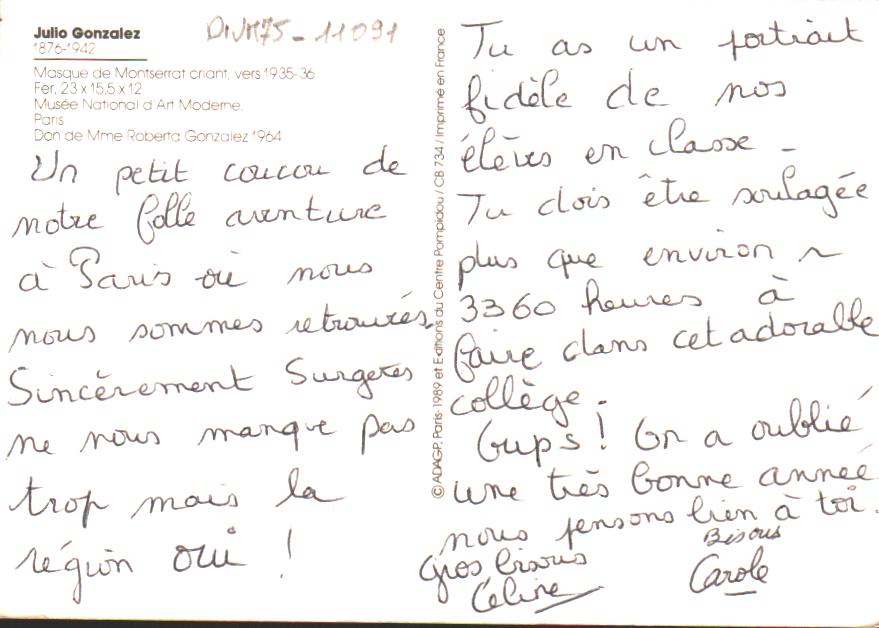 Julio Gonzalez
1876-1942
DIVM75-11091
Masque de Montserrat criant, vers 1935-36
Fer, 23 x 15,5 x 12
Musée National d'Art Moderne,
Paris
Don de Mme Roberta Gonzalez 1964
Un petit coucou de
notre folle aventure
à Paris où nous
nous sommes retrouvés.
Sincèrement Surgeres
ne nous manque pas
trop mais la
région oui !
© ADAGP, Paris-1989 et Editions du Centre Pompidou / CB 734 / Imprimé en France
Tu as un portrait
fidèle de nos
élèves en classe -
Tu dois être soulagée
plus que environ
3360 heures à
faire dans cet adorable
collège.
Oups ! On a oublié
une très bonne année
nous pensons bien à toi.
Gros bisous
Céline
Bisous
Carole